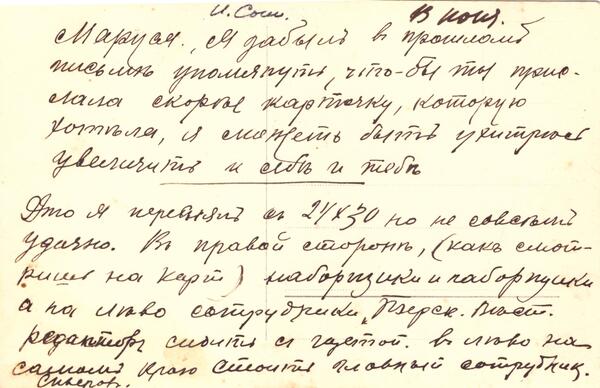 13 июня.
Маруся. Я забылъ в прошломъ
письмѣ упомянуть, что-бы ты прис-
лала скорѣе карточку, которую
хотѣла, я можетъ быть ухитрюсь
увеличить и себѣ и тебѣ
Это я переснялъ съ 24х30 но не совсѣмъ
удачно. Въ правой сторонѣ, (какъ смот-
ришь на карт) наборщики и наборщики
а на лѣво сотрудники
редакторъ сидитъ съ газетой. в лѣво на
самомъ краю стоитъ главный сотрудник.